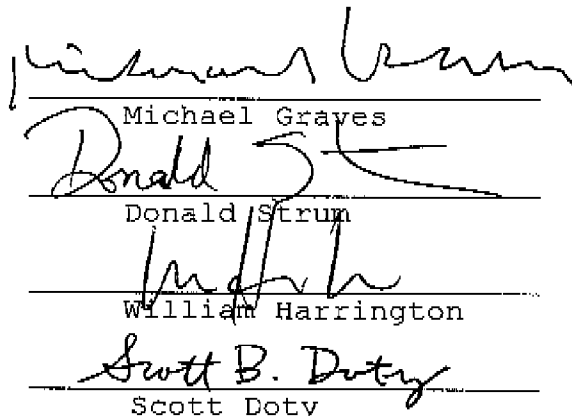 Michael Graves
Donald St
Donald Strum
William Harrington
Scott B. Doty
Scott Doty